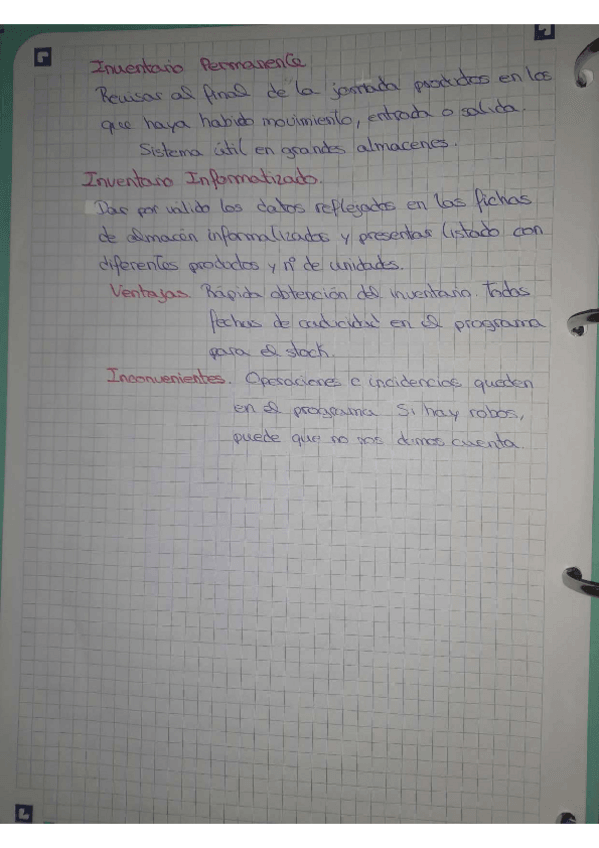 Inventario Permanente
Revisar al final de la jornada productos en los
que haya habido movimiento, entrada o salida.
Sistema útil en grandes almacenes.
Inventaro Informatizado.
Dar por valido los datos reflejados en las fichas
de almacén informalizados y presentar listado con
diferentes productos y nº de unidades.
Ventajas. Rápida obtención del inventario. Todas
fechas de caducidad en el programa
para el stock.
Inconvenientes. Operaciones e incidencias queden
en el programa Si hay robos,
puede que no nos demos cuenta.